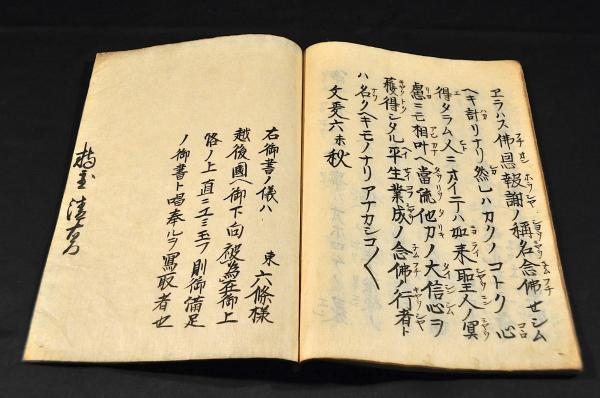 ヱラハス佛恩報謝ノ稱名念佛セシム
ヘキ計リナリ然レハカクノコトク心
得タラム人ニオイテハ如来聖人ノ冥
慮ニモ相叶ヘ當流他力ノ大信心ヲ
獲得シタル平生業成ノ念佛ノ行者ト
ハ名クヘキモノナリアナカシコ〱
文 六 秋
右御書ノ儀ハ 東六條様
越後國ヘ御下向被為在御上
路ノ上直ニユミ玉フ則御備足
ノ御書ト唱奏ルヲ寫取者也